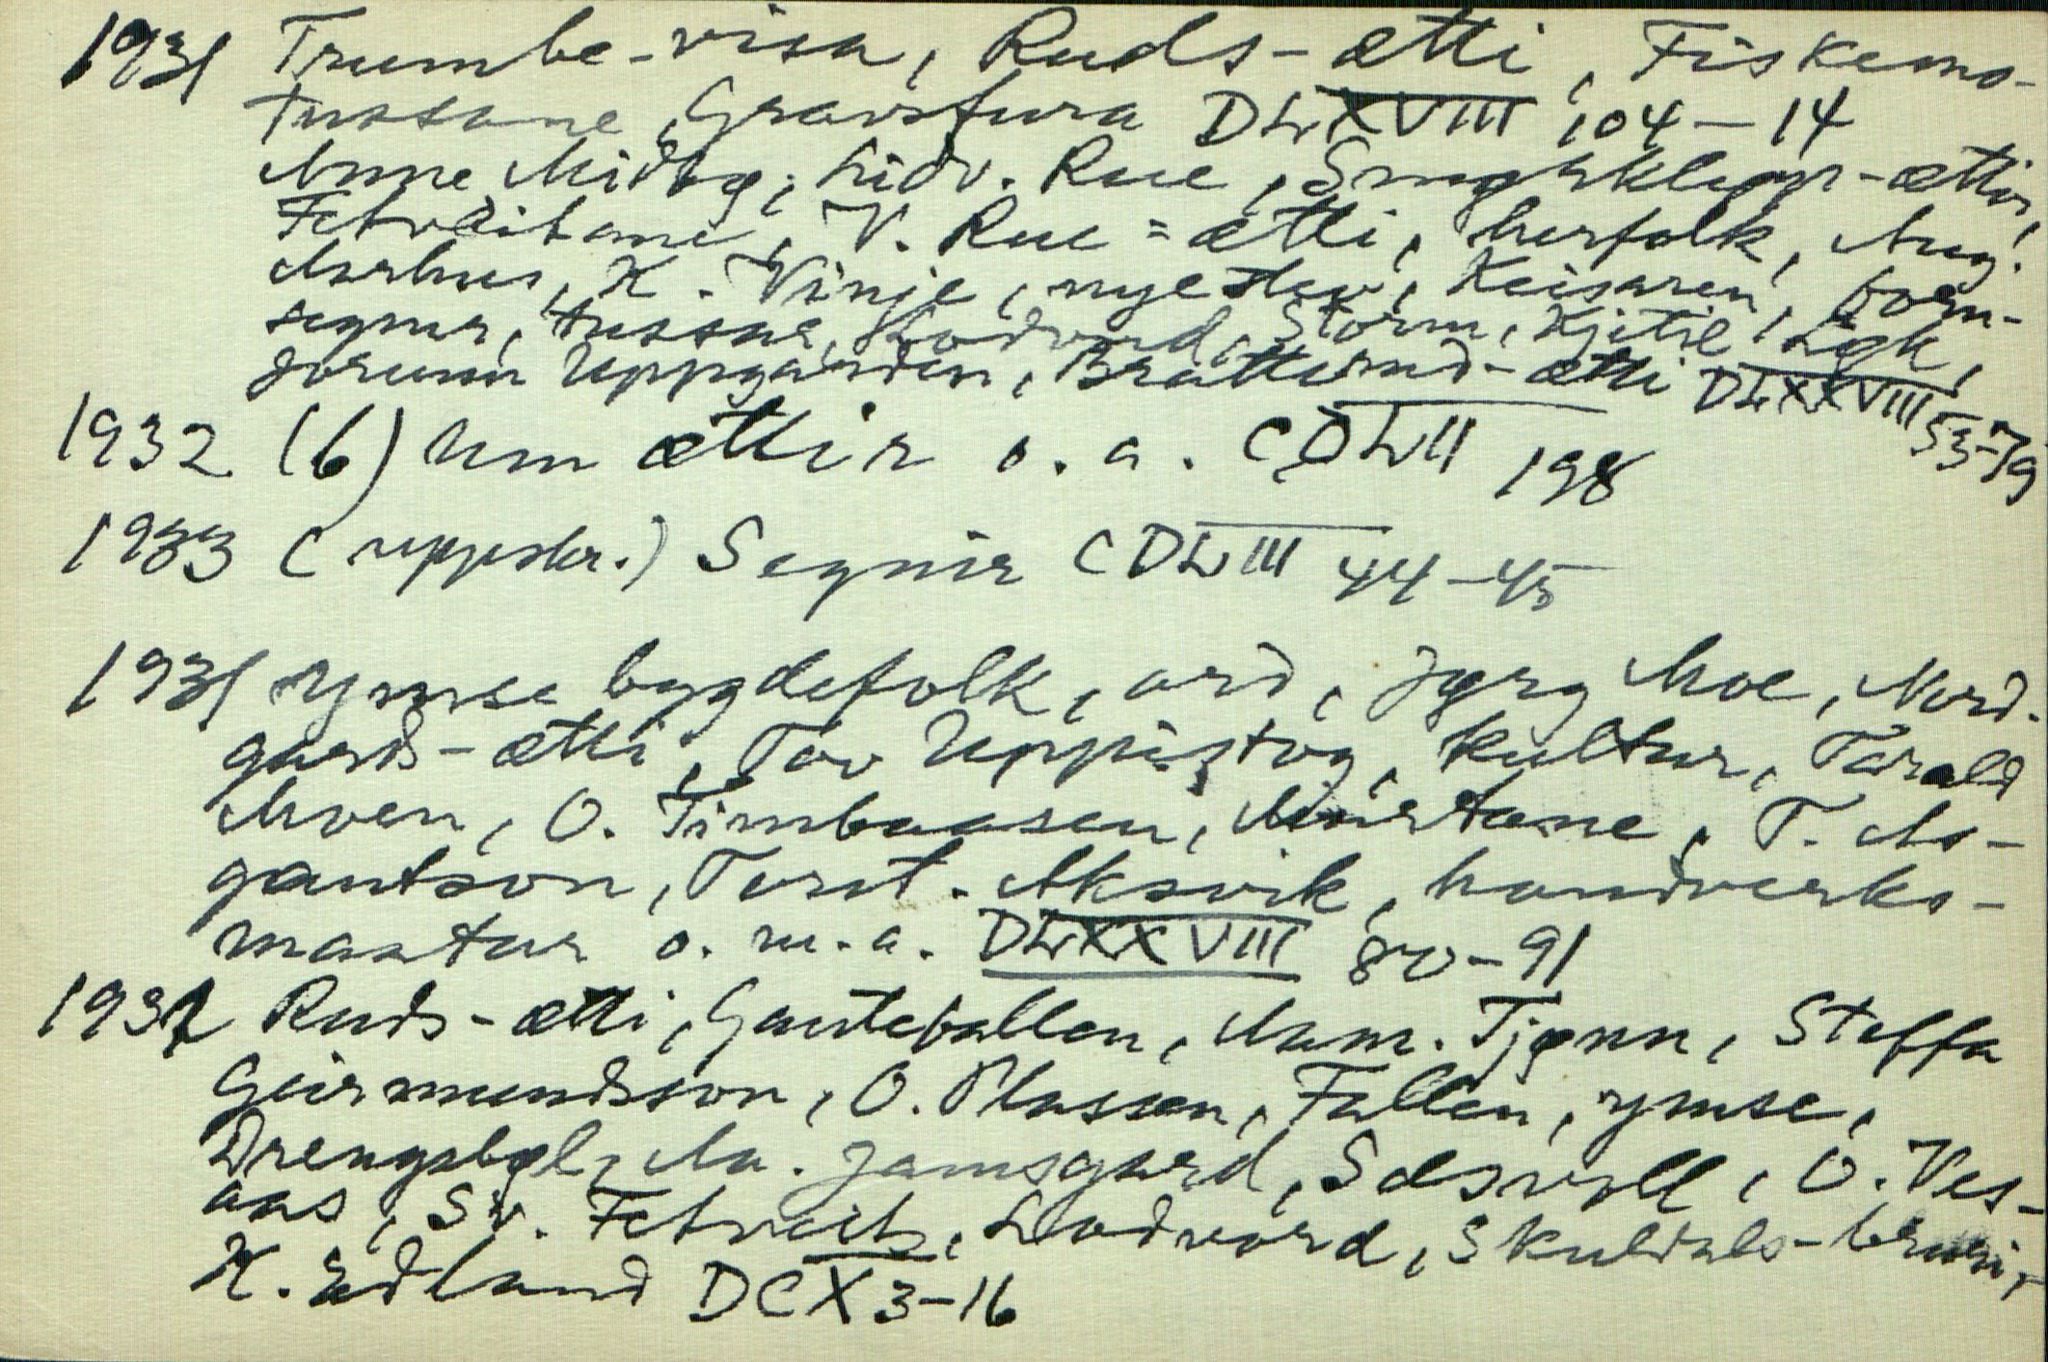 1931 Trumbe-visa, Ruds-ætti, Fiskemo-
tussane, Gravsfura DLXVIII 104-14
Anne Midbø, hidv. Rue, Smørklepp-ættir,
Fetveitane, V. Rue-ætti, herfolk, Aug.
Aarhus, K. Vinje, nye stev, Keisaren, forn-
segner, tussar, Lodvord, Storm, Kjetil Løk,
Jorunn Uppgarden, Bratterud-ætti DLXXVIII 53-79
1932 (6) Um ættir o. a. CDLII 198
1933 (uppskr.) Segnir CDLIII 44-45
1931 Ymse bygdefolk, ord, Jørg Moe, Nord-
gards-ætti, Tov Uppistog, kultur, Tarald
Moen, O. Timbaasen, T. As-
gautson, Torst. Aksvik, handverks-
mastar o. m. a. DLXXVIII 80-91
1932 Ruds-ætti, Gautefallen, Aam. Tjønn, Steffa
Geirmundsson, O. Plassen, Fallen, ymse,
Drengsbøl, Aa. Jamsgard, Selsvoll, O. Ves-
aas, Sv. Fetveit, Lodvord, Skuldals-bruri,
K. Edland DCX 3-16